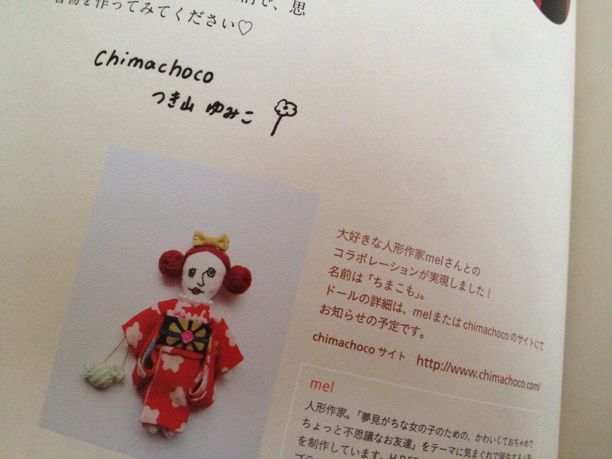 で、思
物を作ってみてください♡
chimachoco
つき山 ゆみこ
大好きな人形作家melさんとの
コラボレーションが実現しました！
名前は「ちまこも」。
ドールの詳細は、melまたはchimachocoのサイトにて
お知らせの予定です。
chimachoco サイト http://www.chimachoco.com/
mel
人形作家。「夢見がちな女の子のための、かわいくておちゃめで
ちょっと不思議なお友達」をテーマに気まぐれで誕生する人形
を制作しています。